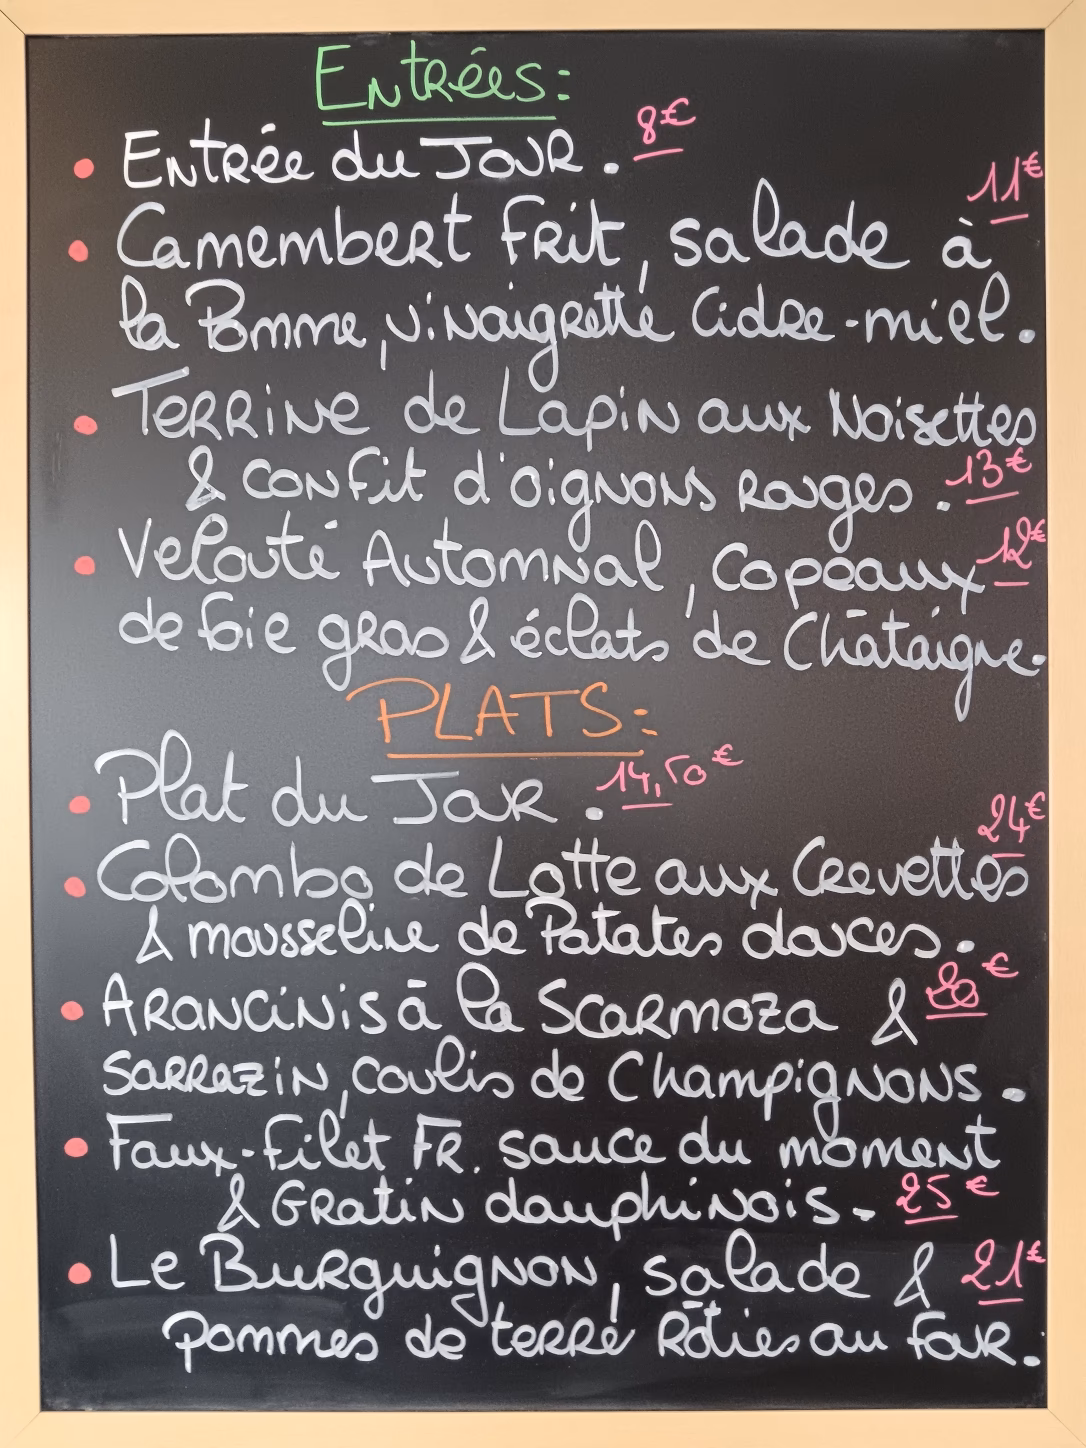 Entrées:
• Entrée du Jour. 8€
• Camembert Frit, salade à 11€
la Pomme, vinaigrette Cidre-miel.
• Terrine de Lapin aux Noisettes
& confit d'oignons Rouges. 13€
• Velouté Automnal, Copeaux 12€
de foie gras & éclats de Châtaigne.
PLATS:
• Plat du Jour. 14,50€
• Colombo de Lotte aux Crevettes 24€
& mousseline de Patates douces.
• Arancinis à la Scarmoza & €
Sarrazin, coulis de Champignons.
• Faux-Filet FR. sauce du moment
& Gratin dauphinois. 25€
• Le Burguignon, salade & 21€
pommes de terre Rôties au Four.